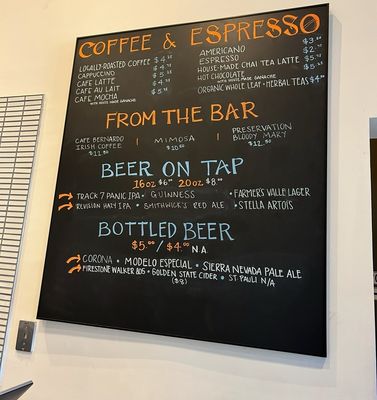 COFFEE & ESPRESSO
LOCALLY-ROASTED COFFEE
CAPPUCCINO
CAFE LATTE
CAFE AU LAIT
CAFE MOCHA
WITH HOUSE MADE GANACHE
AMERICANO
ESPRESSO
HOUSE-MADE CHAI TEA LATTE $5.
HOT CHOCOLATE $5.
WITH HOUSE MADE GANACHE
ORGANIC WHOLE LEAF & HERBAL TEAS $4
FROM THE BAR
CAFE BERNARDO
IRISH COFFEE
| MIMOSA |
PRESERVATION
BLOODY MARY
$12.50
BEER ON TAP
16oz $6.⁰⁰ 20oz $8.⁰⁰
TRACK 7 PANIC IPA • GUINNESS • FARMER'S VALLEY LAGER
REVISION HAZY IPA • SMITHWICK'S RED ALE • STELLA ARTOIS
BOTTLED BEER
$5.⁰⁰ / $4.⁰⁰ N.A
CORONA • MODELO ESPECIAL • SIERRA NEVADA PALE ALE
FIRESTONE WALKER 805 • GOLDEN STATE CIDER • ST PAULI N/A
($8)